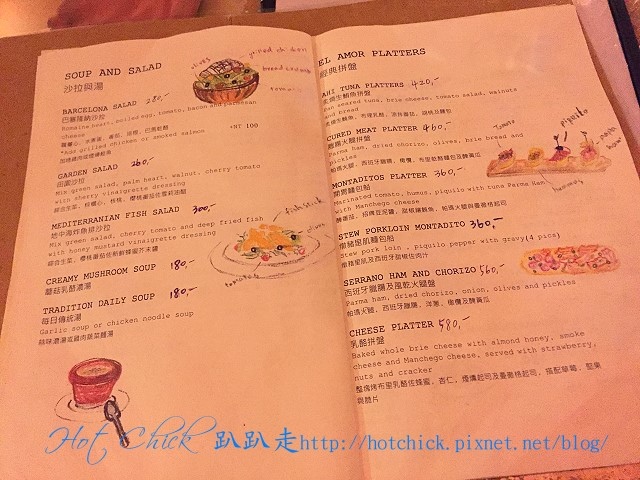 SOUP AND SALAD
沙拉與湯
olives
grilled chicken
bread crumb
BARCELONA SALAD 280,-
巴塞隆納沙拉
Romaine heart, boiled egg, tomato, bacon and parmesan
cheese
*Add grilled chicken or smoked salmon +NT 100
加燒雞肉或煙燻鮭魚
GARDEN SALAD 260,-
田園沙拉
Mix green salad, palm heart, walnut, cherry tomato
with sherry vinaigrette dressing
MEDITERRANIEN FISH SALAD 300,-
地中海炸魚排沙拉
Mix green salad, cherry tomato and deep fried fish
with honey mustard vinaigrette dressing
fish stick
olives
tomatoes
CREAMY MUSHROOM SOUP 180,-
蘑菇乳酪濃湯
TRADITION DAILY SOUP 180,-
每日傳統湯
Garlic soup or chicken noodle soup
蒜味濃湯或雞肉蔬菜麵湯
EL AMOR PLATTERS
經典拼盤
AHI TUNA PLATTERS 420,-
Pan seared tuna, brie cheese, tomato salad, walnuts
and bread
CURED MEAT PLATTER 460,-
風臘火腿拼盤
Parma ham, dried chorizo, olives, brie bread and
pickles
MONTADITOS PLATTER 360,-
Marinated tomato, humus, piquilo with tuna Parma Ham
with Manchego cheese
Tomato
Piquilo
STEW PORKLOIN MONTADITO 360,-
燉豬里肌麵包船
Stew pork loin, piquilo pepper with gravy(4 pics)
SERRANO HAM AND CHORIZO 560,-
西班牙臘腸及風乾火腿盤
Parma ham, dried chorizo, onion, olives and pickles
帕瑪火腿、西班牙臘腸、洋蔥、橄欖及醃黃瓜
CHEESE PLATTER 580,-
乳酪拼盤
Baked whole brie cheese with almond honey, smoke
cheese and Manchego cheese, served with strawberry,
nuts and cracker
Hot Chick 趴趴走http://hotchick.pixnet.net/blog/